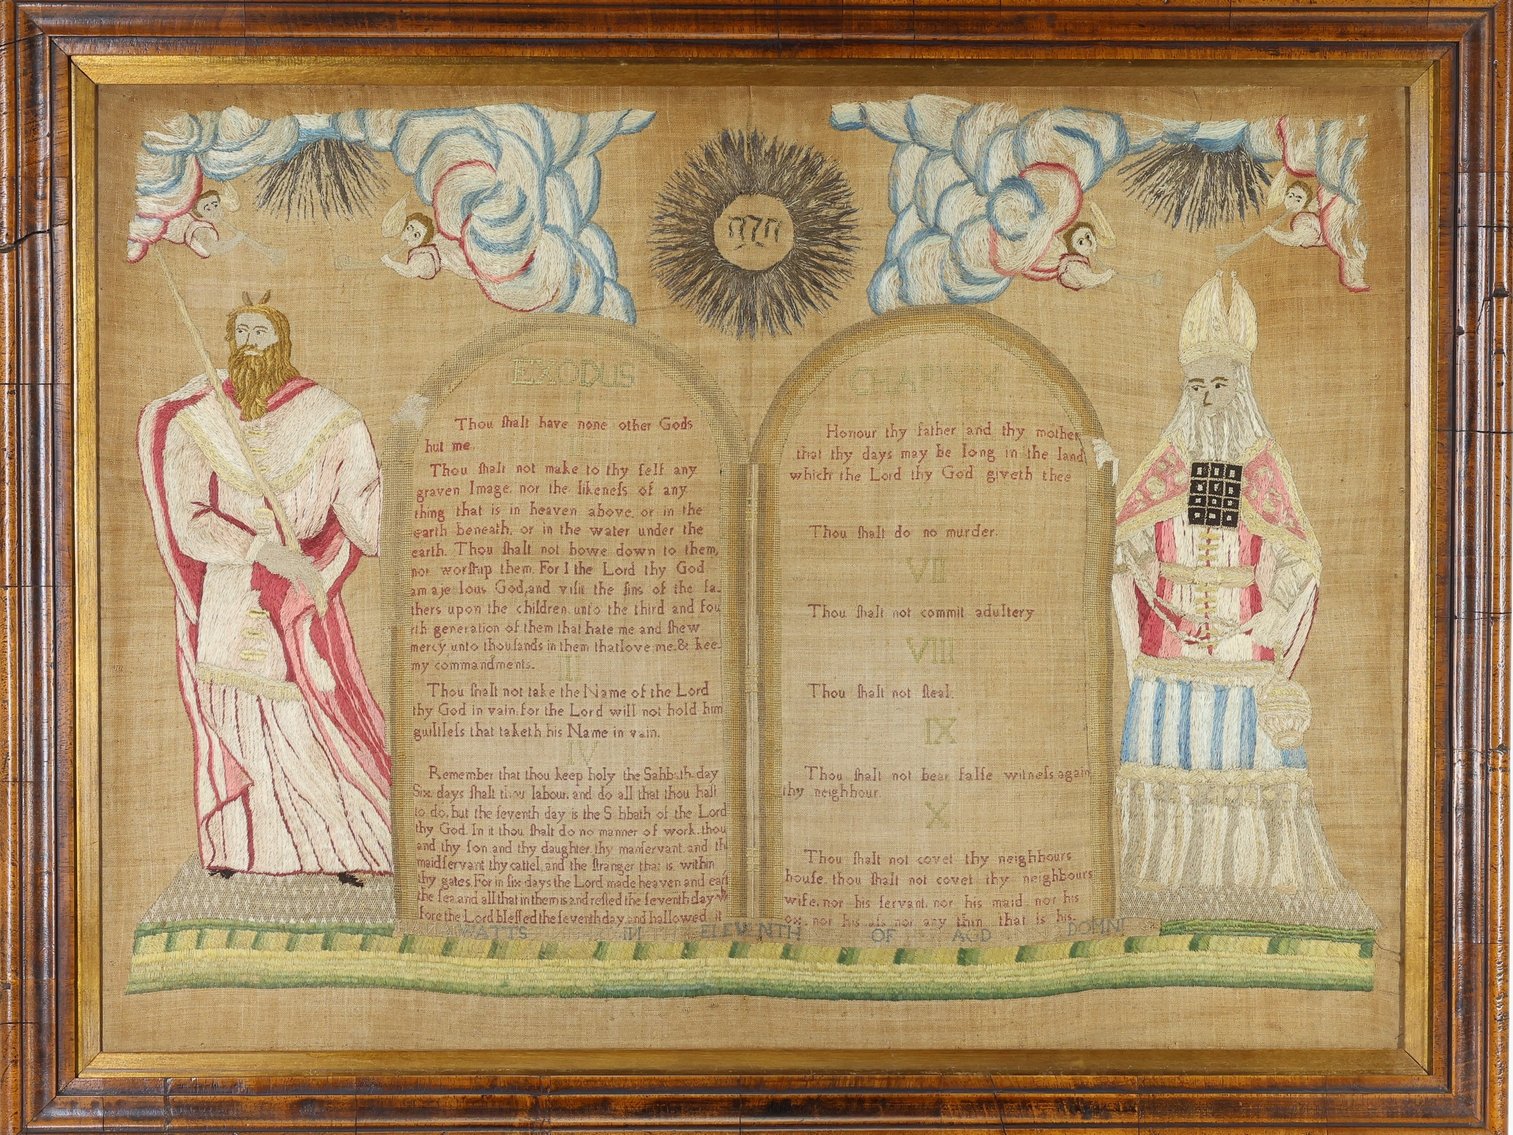 יהוה
EXODUS
I
Thou ſhalt have none other Gods
but me
Thou ſhalt not make to thy ſelf any
graven Image, nor the likeneſs of any
thing that is in heaven above, or in the
earth beneath, or in the water under the
earth. Thou ſhalt not bowe down to them,
nor worſhip them. For I the Lord thy God
am a je lous God, and viſit the ſins of the fa
thers upon the children, unto the third and fou
rth generation of them that hate me and ſhew
mercy unto thouſands in them that love me & kee
my commandments.
III
Thou ſhalt not take the Name of the Lord
thy God in vain, for the Lord will not hold him
guiltleſs that taketh his Name in vain.
IV
Remember that thou keep holy the Sabbath day
Six days ſhalt thou labour, and do all that thou haſt
to do, but the ſeventh day is the S bbath of the Lord
thy God. In it thou ſhalt do no manner of work, thou
and thy ſon and thy daughter, thy manſervant and th
maidſervant thy cattel, and the ſtranger that is within
thy gates. For in ſix days the Lord made heaven and eart
the ſea and all that in them is and reſted the ſeventh day
fore the Lord bleſſed the ſeventh day and hallowed it
V
Honour thy father and thy mother
that thy days may be long in the land
which the Lord thy God giveth thee
Thou ſhalt do no murder.
VII
Thou ſhalt not commit adultery
VIII
Thou ſhalt not ſteal.
IX
Thou ſhalt not bear falſe witneſs again
thy neighbour.
X
Thou ſhalt not covet thy neighbours
houſe, thou ſhalt not covet thy neighbours
wife, nor his ſervant, nor his maid, nor his
ox, nor his aſs, nor any thin that is his.
WATTS IN THE ELEVENTH OF AOD DOMNI